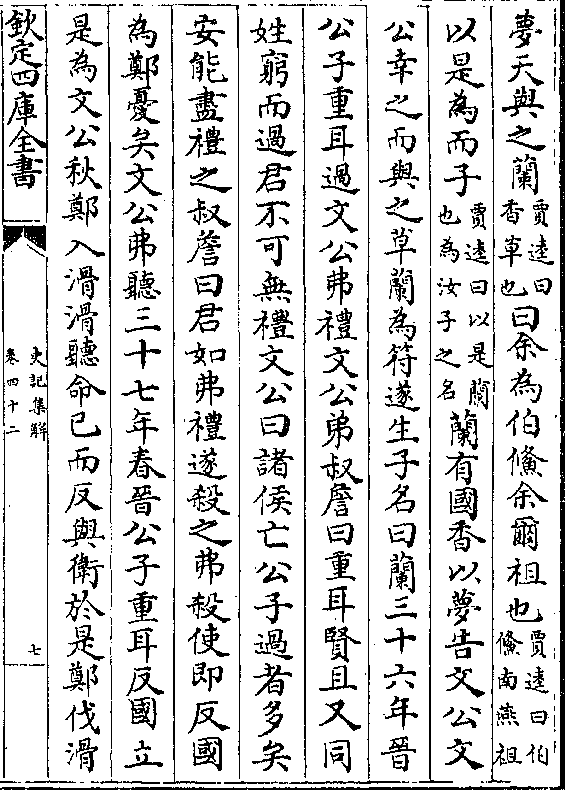 夢天與之蘭賈逵曰香草也曰余為伯鯈余爾祖也賈逵曰伯鯈南燕祖
以是為而子賈逵曰以是蘭也為汝子之名蘭有國香以夢告文公文
公幸之而與之草蘭為符遂生子名曰蘭三十六年晉
公子重耳過文公弗禮文公弟叔詹曰重耳賢且又同
姓窮而過君不可無禮文公曰諸侯亡公子過者多矣
安能盡禮之叔詹曰君如弗禮遂殺之弗殺使即反國
為鄭憂矣文公弗聽三十七年春晉公子重耳反國立
是為文公秋鄭入滑滑聽命已而反與衛於是鄭伐滑
欽定四庫全書
史記集解
卷四十二
七